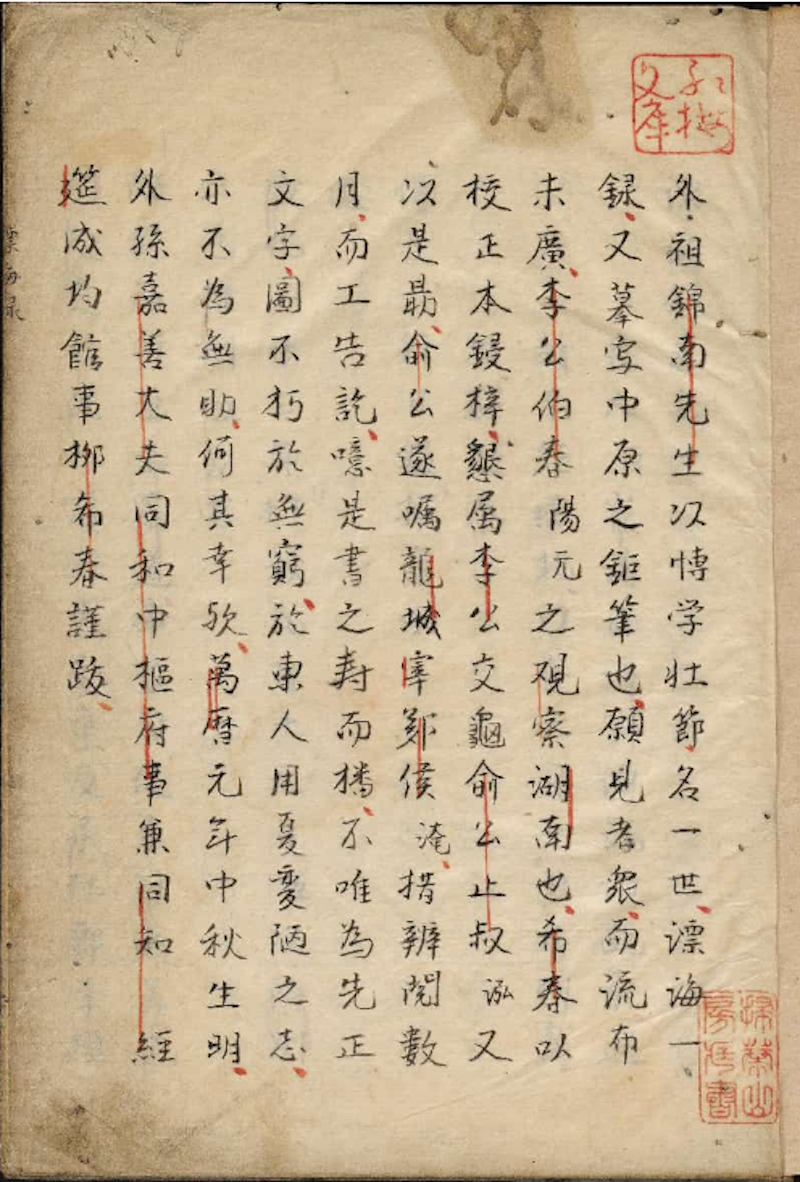 紅梅
文庫
外祖錦南先生以博学壮節名一世漂海一
録又摹写中原之鉅筆也願見者衆而流布
未廣李公伯春陽元之観察湖南也希春以
校正本鋟梓懇属李公交龜俞公止叔泓又
以是勗俞公遂嘱龍城宰鄭侯淹措辦閲數
月而工告訖噫是書之寿而播不唯為先正
文字圖不朽於無窮於東人用夏変陋之志
亦不為無助何其幸欤萬暦元年中秋生明
外孫嘉善大夫同和中樞府事兼同知 経
筵成均館事柳希春謹跋
掃葉山
房蔵書
漂海录